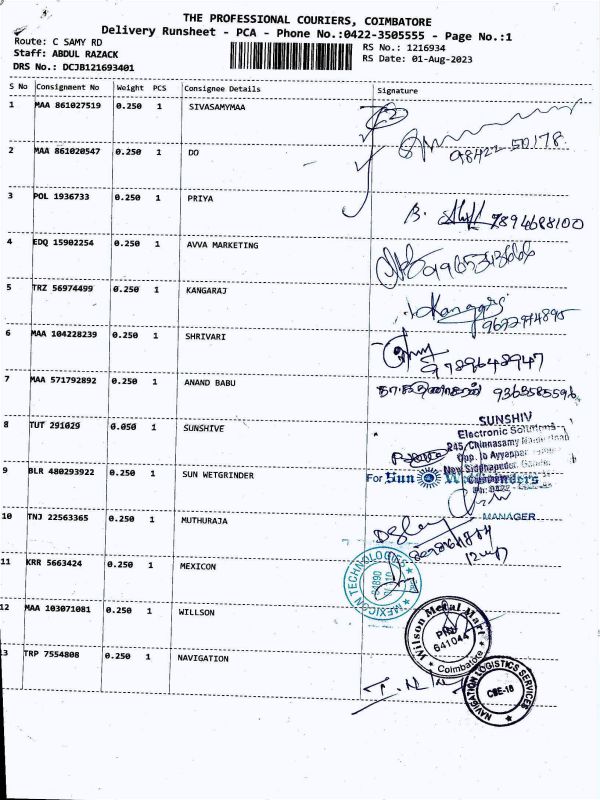 THE PROFESSIONAL COURIERS, COIMBATORE
Delivery Runsheet - PCA - Phone No.:0422-3505555 - Page No.:1
Route: C SAMY RD
RS No.: 1216934
Staff: ABDUL RAZACK
RS Date: 01-Aug-2023
DRS No.: DCJB121693401
S No Consignment No Weight PCS Consignee Details Signature
1 MAA 861027519 0.250 1 SIVASAMYMAA
2 MAA 861020547 0.250 1 DO 98422 50178
3 POL 1936733 0.250 1 PRIYA B. 7894688100
4 EDQ 15902254 0.250 1 AVVA MARKETING
5 TRZ 56974499 0.250 1 KANGARAJ Kangaraj
6 MAA 104228239 0.250 1 SHRIVARI 9789648947
7 MAA 571792892 0.250 1 ANAND BABU 9363585596
8 TUT 291029 0.050 1 SUNSHIVE SUNSHIV
Electronic Solutions
245, Chinnasamy Naidu Road
Opp. to Ayyappan
New Siddhapudur,
9 BLR 480293922 0.250 1 SUN WETGRINDER For Sun Wetgrinders
MANAGER
10 TNJ 22563365 0.250 1 MUTHURAJA
11 KRR 5663424 0.250 1 MEXICON MEXICON TECHNOLOGIES
12 MAA 103071081 0.250 1 WILLSON Wilson Metal Mart
641044
Coimbatore
13 TRP 7554808 0.250 1 NAVIGATION NAVIGATION LOGISTICS SERVICES
CBE-18